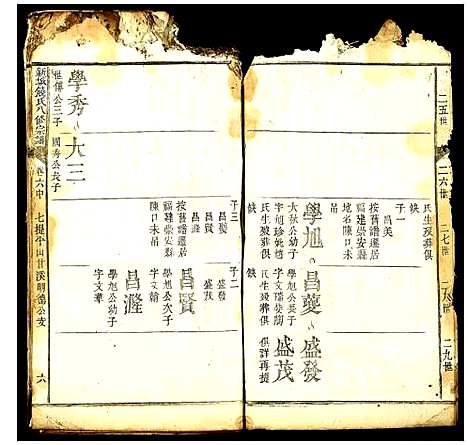 二五世
二六世
二七世
二八世
二九世
氏生歿葬俱
缺
子一
昌美
按舊譜遷居
福建崇安縣
地名陳口未
吊
學旭
大秋公幼子
字旭
氏生歿葬俱
缺
昌夔
學旭公長子
字文瑞
氏生歿葬俱
缺
盛發
盛茂
俱詳再提
子三
昌夔
昌賢
昌漋
按舊譜遷居
福建崇安縣
陳口未吊
子二
盛發
盛茂
昌賢
學旭公次子
字文翰
昌漋
學旭公幼子
字文華
學秀
世傳公三子
大三
國秀公長子
新城饒氏八修宗譜
卷六中
七提午四廿溪明德公支
六